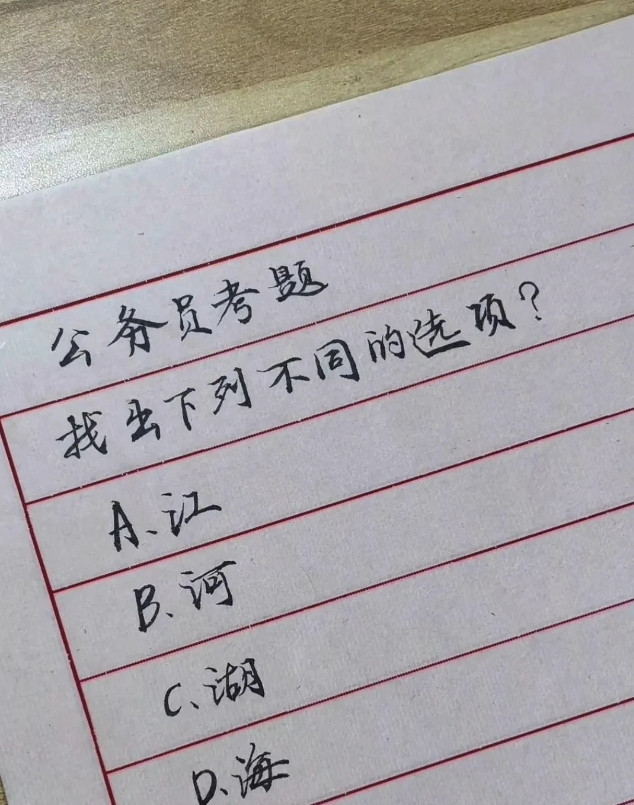 公务员考题
找出下列不同的选项?
A、江
B、河
C、湖
D、海